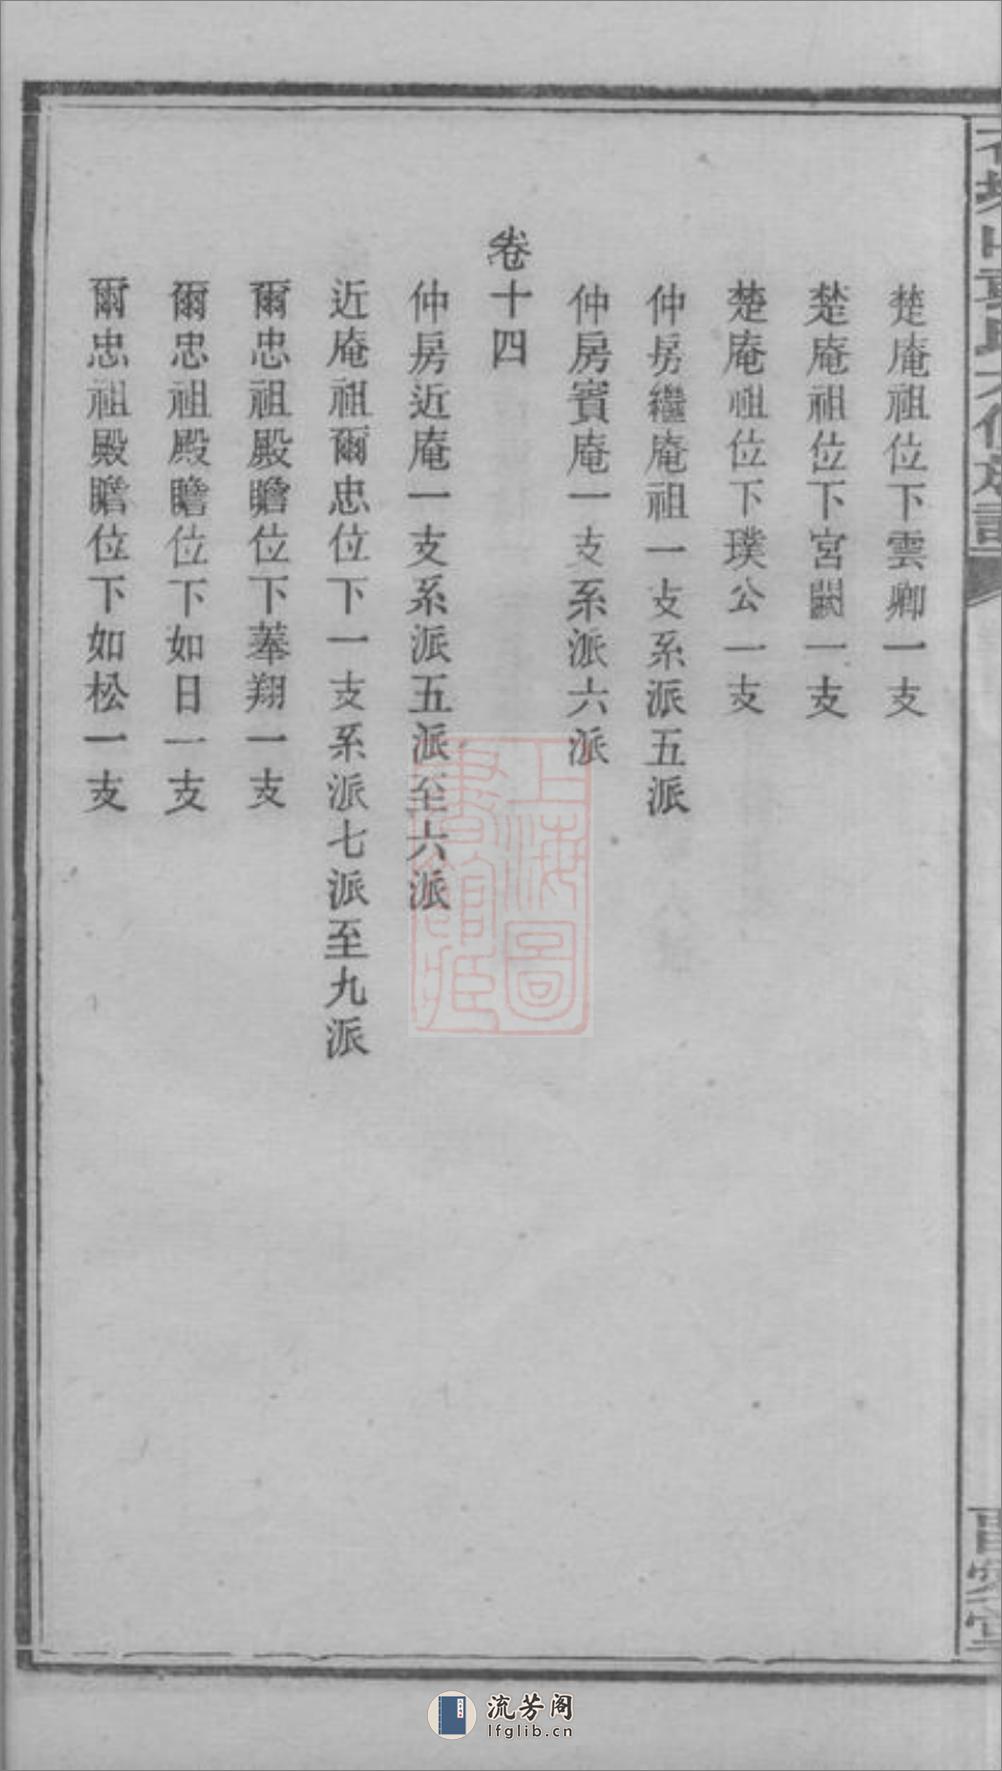 楚庵祖位下雲卿一支
楚庵祖位下宮闕一支
楚庵祖位下璞公一支
仲房繼庵祖一支系派五派
仲房賓庵一支系派六派
卷十四
仲房近庵一支系派五派至六派
近庵祖爾忠位下一支系派七派至九派
爾忠祖殿瞻位下羣翔一支
爾忠祖殿瞻位下如日一支
爾忠祖殿瞻位下如松一支
上海圖書館藏
流芳阁
lfglib.cn